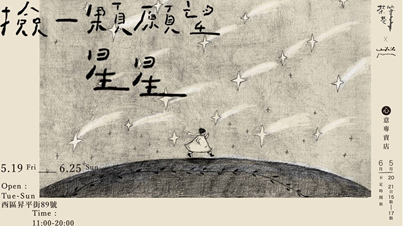 撿一顆願望
星星
5.19 Fri — 6.25 Sun
Open :
Tue-Sun
西區昇平街89號
Time :
11:00-20:00
心意專賣店